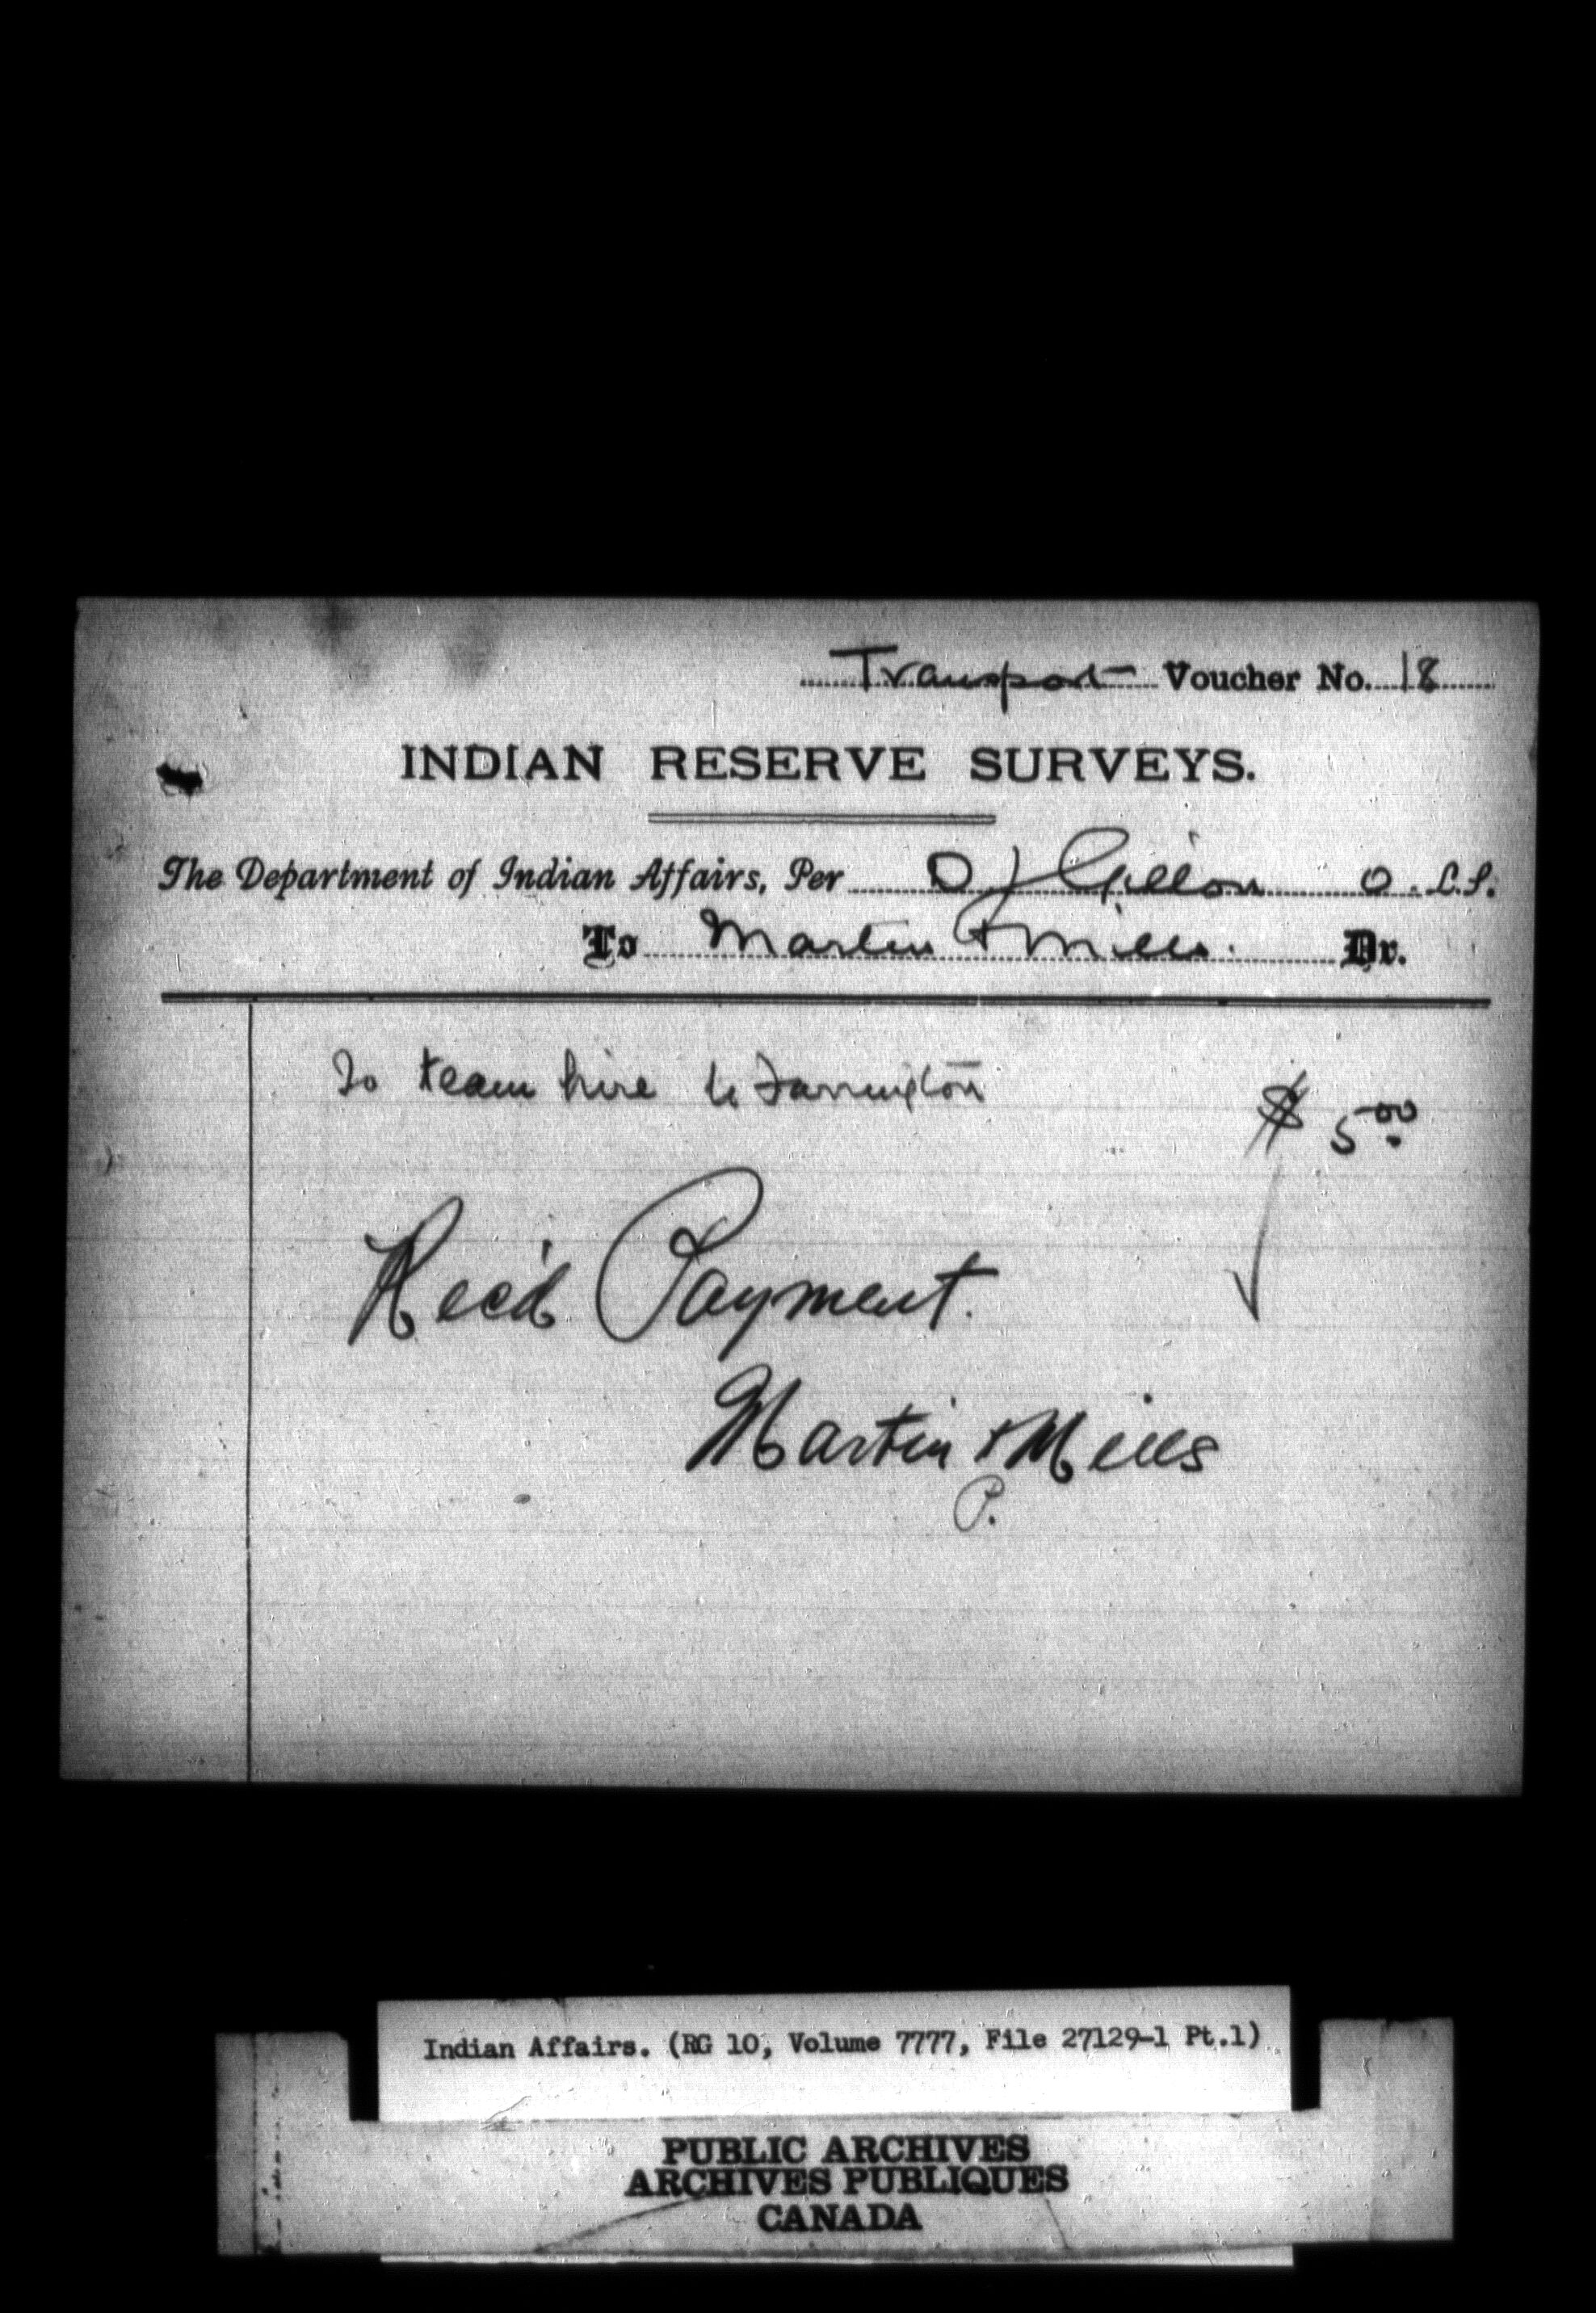 Transport Voucher No. 18
INDIAN RESERVE SURVEYS.
The Department of Indian Affairs, Per D J Gillon O. L.S.
To Martin & Mills. Dr.
To team hire to Farrington
$ 5.00
Rec'd Payment.
Martin & Mills
P.
Indian Affairs. (RG 10, Volume 7777, File 27129-1 Pt.1)
PUBLIC ARCHIVES
ARCHIVES PUBLIQUES
CANADA